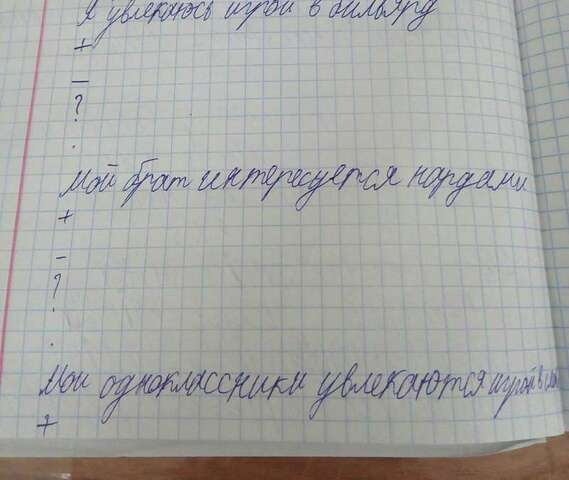 Я увлекаюсь игрой в бильярд
+
–
?
.
Мой брат интересуется нардами
+
–
?
.
.
Мои одноклассники увлекаются игрой в
+